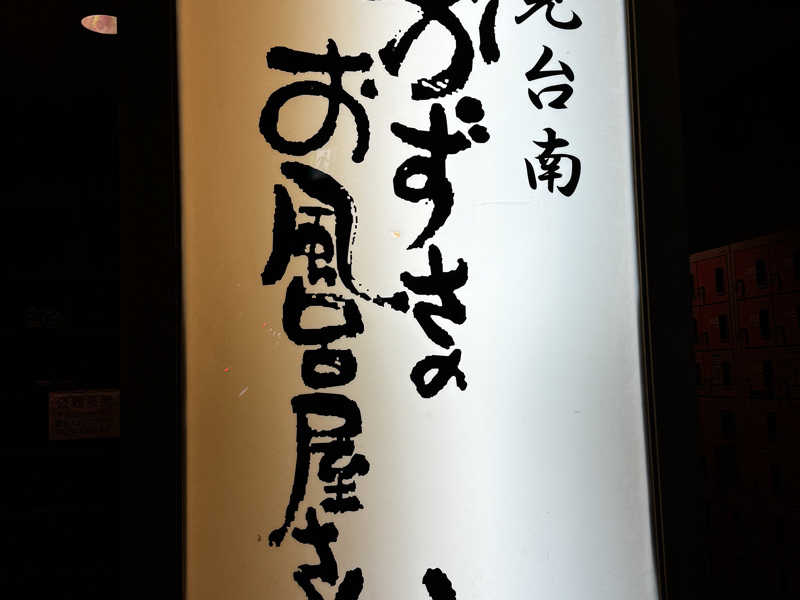 台南
かずさの
お風呂屋さん